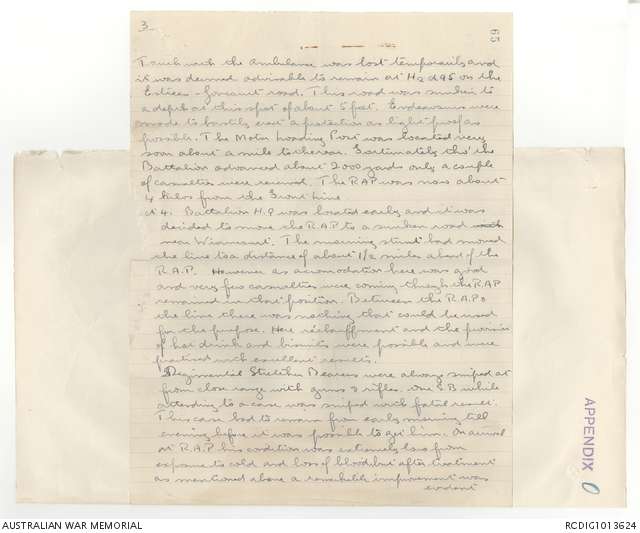 3
65
Touch with the Ambulance was lost temporarily and
it was deemed advisable to remain at H2 d 95 on the
Estrees - Joncourt road. This road was sunken to
a depth at this spot of about 5 feet. Endeavours were
made to hastily erect a protection as light proof as
possible. The Motor Loading Post was located very
soon about a mile to the rear. Fortunately tho' the
Battalion advanced about 2000 yards only a couple
of casualties were received. The RAP was now about
4 kilos from the front line
at 4. Battalion H.Q was located early and it was
decided to move the R.A.P to a sunken road
near Wiancourt. The morning stunt had moved
the line to a distance of about 1½ miles ahead of the
R.A.P. However as acomodation here was good
and very few casualties were coming through the RAP
remained in that position. Between the R.A.P &
the line there was nothing that could be used
for the purpose. Here rechauffment and the provision
of hot drinks and biscuits were possible and were
practised with excellent results.
Regimental Stretcher Bearers were always sniped at
from close range with guns & rifles. One SB while
attending to a case was sniped with fatal result.
This case had to remain from early morning till
evening before it was possible to get him. On arrival
at R.A.P his condition was extremely low from
exposure to cold and loss of blood but after treatment
as mentioned above a remarkable improvement was
evident
APPENDIX
AUSTRALIAN WAR MEMORIAL
RCDIG1013624